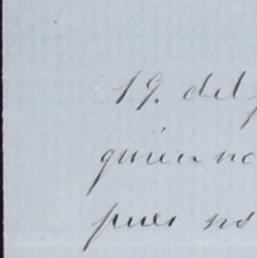 19. del
quien no
pues no